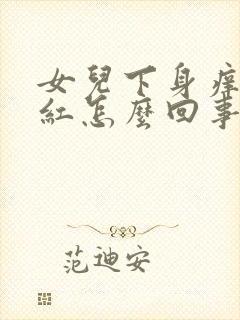 女兒下身癢
紅怎麼回事
范迪安